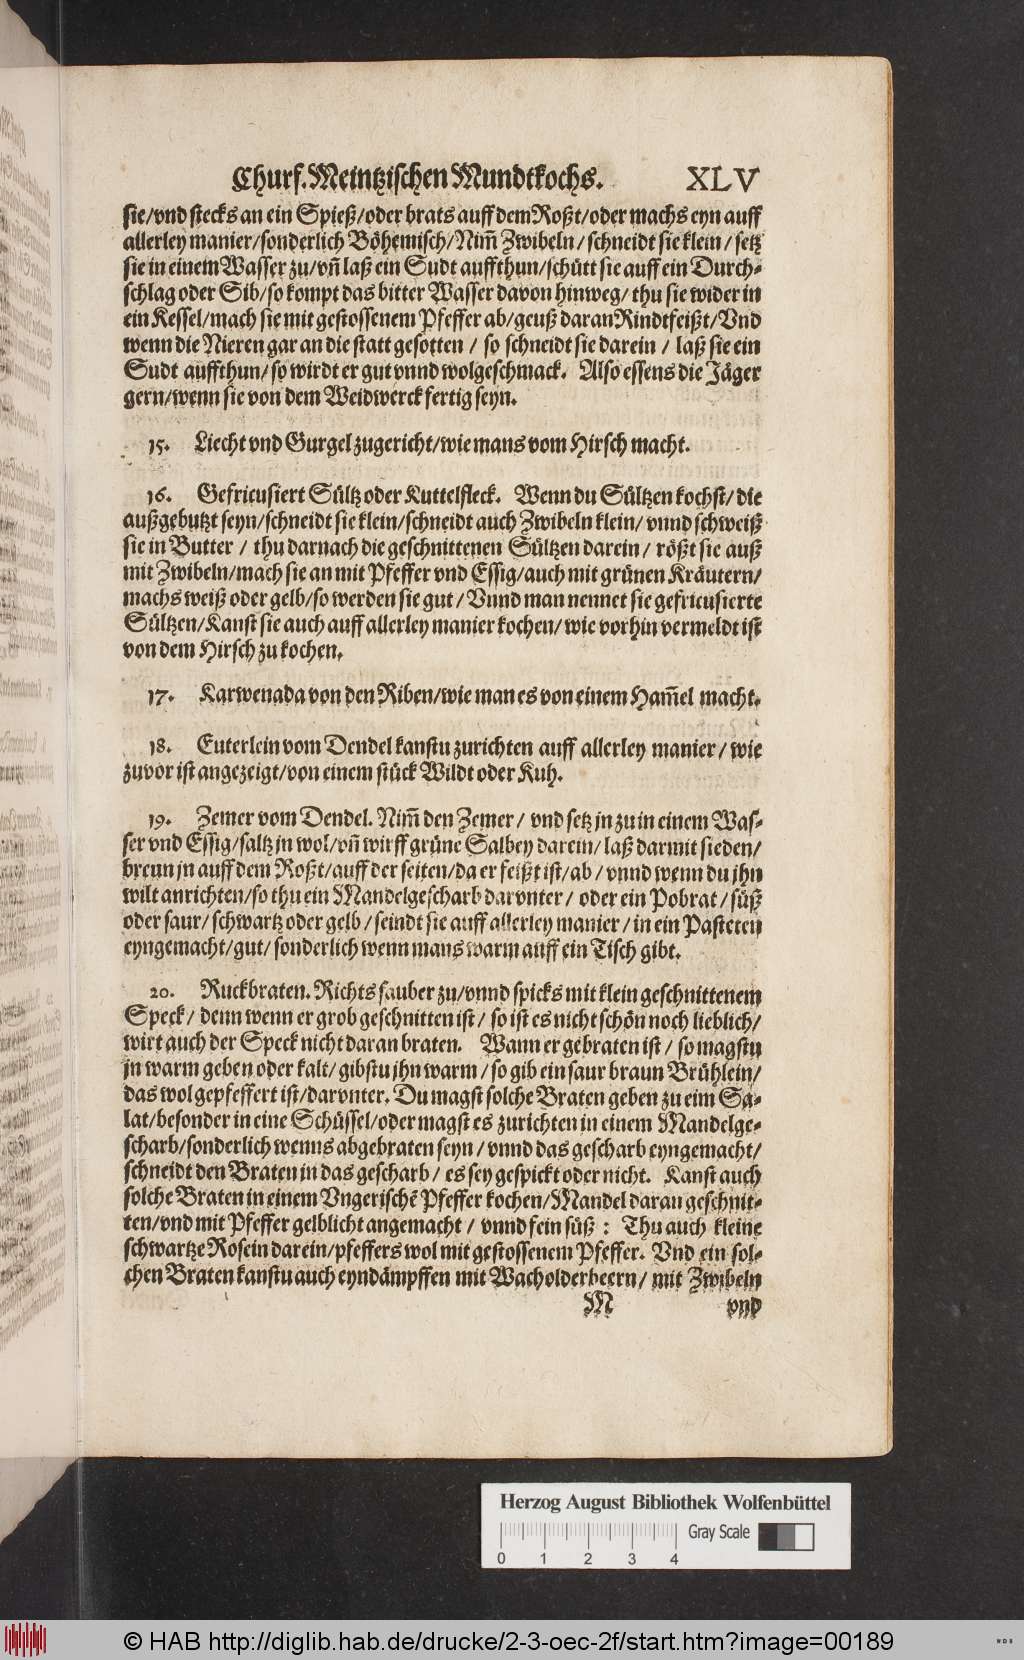 Churf. Meintzischen Mundtkochs. XLV
sie/vnd stecks an ein Spieß/oder brats auff dem Roßt/oder machs eyn auff
allerley manier/sonderlich Böhemisch/Nim̃ Zwibeln/schneidt sie klein/setz
sie in einem Wasser zu/vñ laß ein Sudt auffthun/schütt sie auff ein Durch-
schlag oder Sib/so kompt das bitter Wasser davon hinweg/thu sie wider in
ein Kessel/mach sie mit gestossenem Pfeffer ab/geuß daran Rindtfeißt/Vnd
wenn die Nieren gar an die statt gesotten/so schneidt sie darein/laß sie ein
Sudt auffthun/so wirdt er gut vnnd wolgeschmack. Also essens die Jäger
gern/wenn sie von dem Weidwerck fertig seyn.
15. Liecht vnd Gurgel zugericht/wie mans vom Hirsch macht.
16. Gefricusiert Sültz oder Kuttelfleck. Wenn du Sültzen kochst/die
außgebutzt seyn/schneidt sie klein/schneidt auch Zwibeln klein/vnnd schweiß
sie in Butter/thu darnach die geschnittenen Sültzen darein/rößt sie auß
mit Zwibeln/mach sie an mit Pfeffer vnd Essig/auch mit grünen Kräutern/
machs weiß oder gelb/so werden sie gut/Vnnd man nennet sie gefricusierte
Sültzen/Kanst sie auch auff allerley manier kochen/wie vorhin vermeldt ist
von dem Hirsch zu kochen.
17. Karwenada von den Riben/wie man es von einem Ham̃el macht.
18. Euterlein vom Dendel kanstu zurichten auff allerley manier/wie
zuvor ist angezeigt/von einem stück Wildt oder Kuh.
19. Zemer vom Dendel. Nim̃ den Zemer/vnd setz jn zu in einem Was-
ser vnd Essig/saltz jn wol/vñ wirff grüne Salbey darein/laß darmit sieden/
brenn jn auff dem Roßt/auff der seiten/da er feißt ist/ab/vnnd wenn du jhn
wilt anrichten/so thu ein Mandelgescharb darvnter/oder ein Pobrat/süß
oder saur/schwartz oder gelb/seindt sie auff allerley manier/in ein Pasteten
eyngemacht/gut/sonderlich wenn mans warm auff ein Tisch gibt.
20. Ruckbraten. Richts sauber zu/vnnd spicks mit klein geschnittenem
Speck/denn wenn er grob geschnitten ist/so ist es nicht schön noch lieblich/
wirt auch der Speck nicht daran braten. Wann er gebraten ist/so magstu
jn warm geben oder kalt/gibstu jhn warm/so gib ein saur braun Brühlein/
das wol gepfeffert ist/darvnter. Du magst solche Braten geben zu eim Sa-
lat/besonder in eine Schüssel/oder magst es zurichten in einem Mandelge-
scharb/sonderlich wenns abgebraten seyn/vnnd das gescharb eyngemacht/
schneidt den Braten in das gescharb/es sey gespickt oder nicht. Kanst auch
solche Braten in einem Vngerischẽ Pfeffer kochen/Mandel daran geschnit-
ten/vnd mit Pfeffer gelblicht angemacht/vnnd fein süß: Thu auch kleine
schwartze Rosein darein/pfeffers wol mit gestossenem Pfeffer. Vnd ein sol-
chen Braten kanstu auch eyndämpffen mit Wacholderbeern/mit Zwibeln
M vnd
Herzog August Bibliothek Wolfenbüttel
0 1 2 3 4 Gray Scale
© HAB http://diglib.hab.de/drucke/2-3-oec-2f/start.htm?image=00189